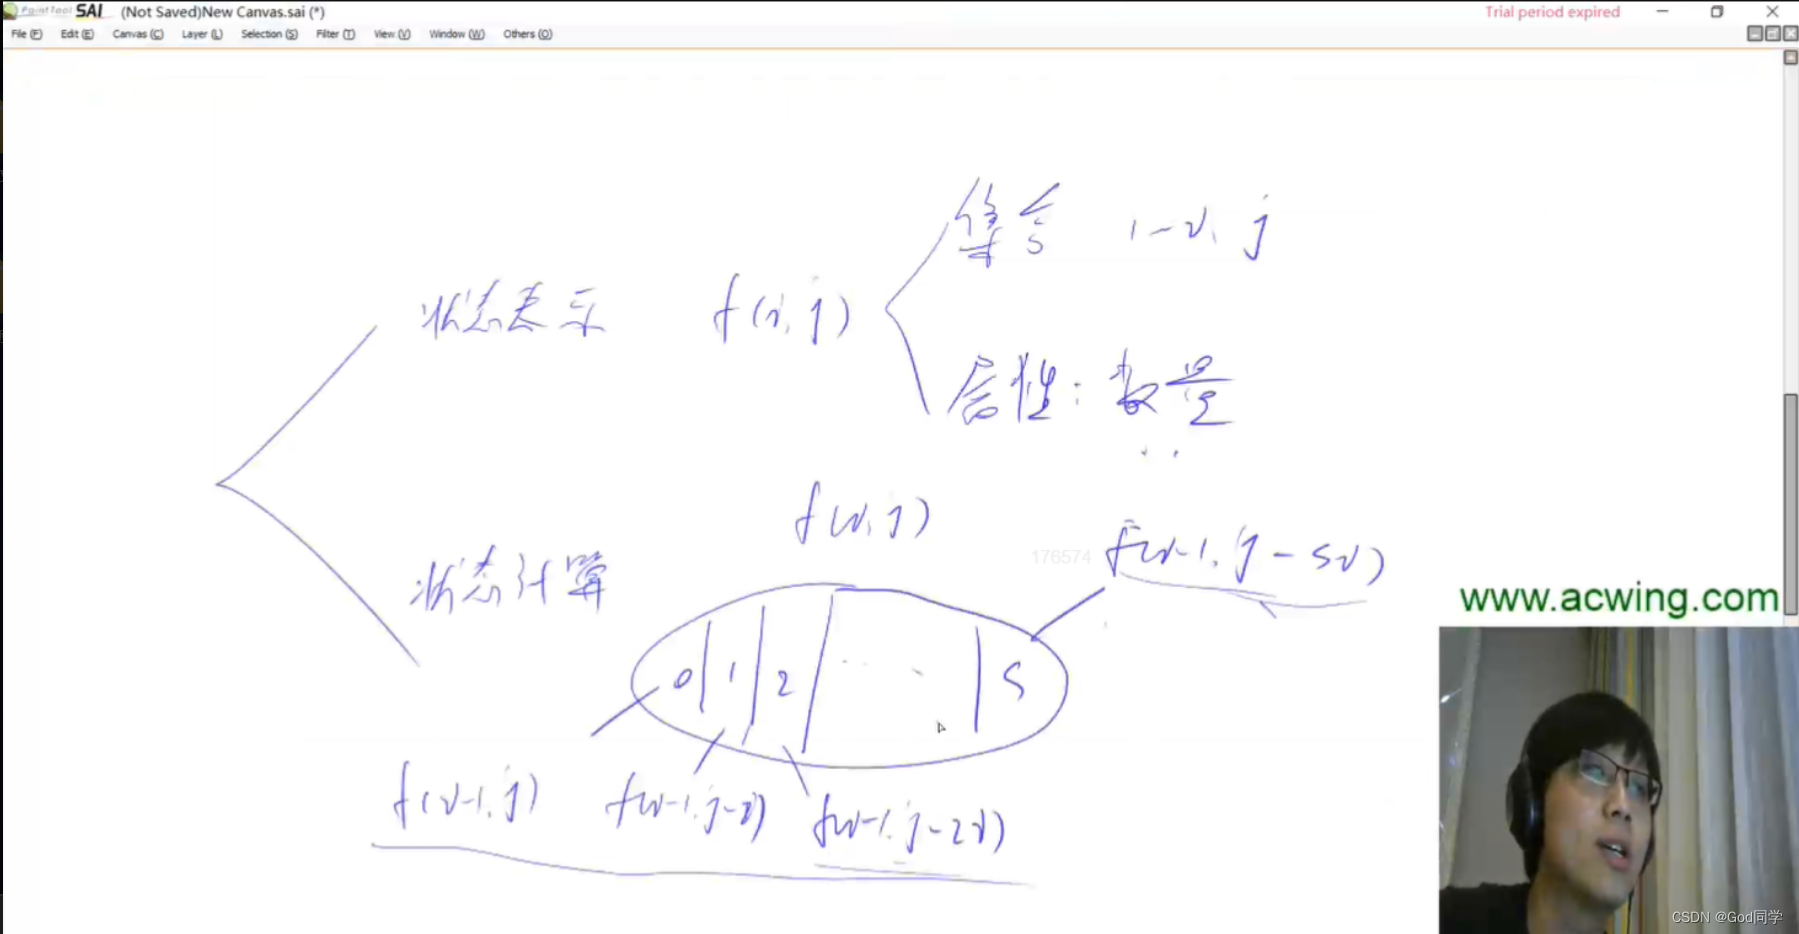 PaintTool SAI (Not Saved)New Canvas.sai (*) Trial period expired
File (F) Edit (E) Canvas (C) Layer (L) Selection (S) Filter (T) View (V) Window (W) Others (O)
集合 1-i, j
状态表示 f(i, j)
属性: 数量
f(i, j)
176574 f(i-1, j-si)
状态计算
www.acwing.com
0 1 2 ... S
f(i-1, j) f(i-1, j-i) f(i-1, j-2i)
CSDN @God同学